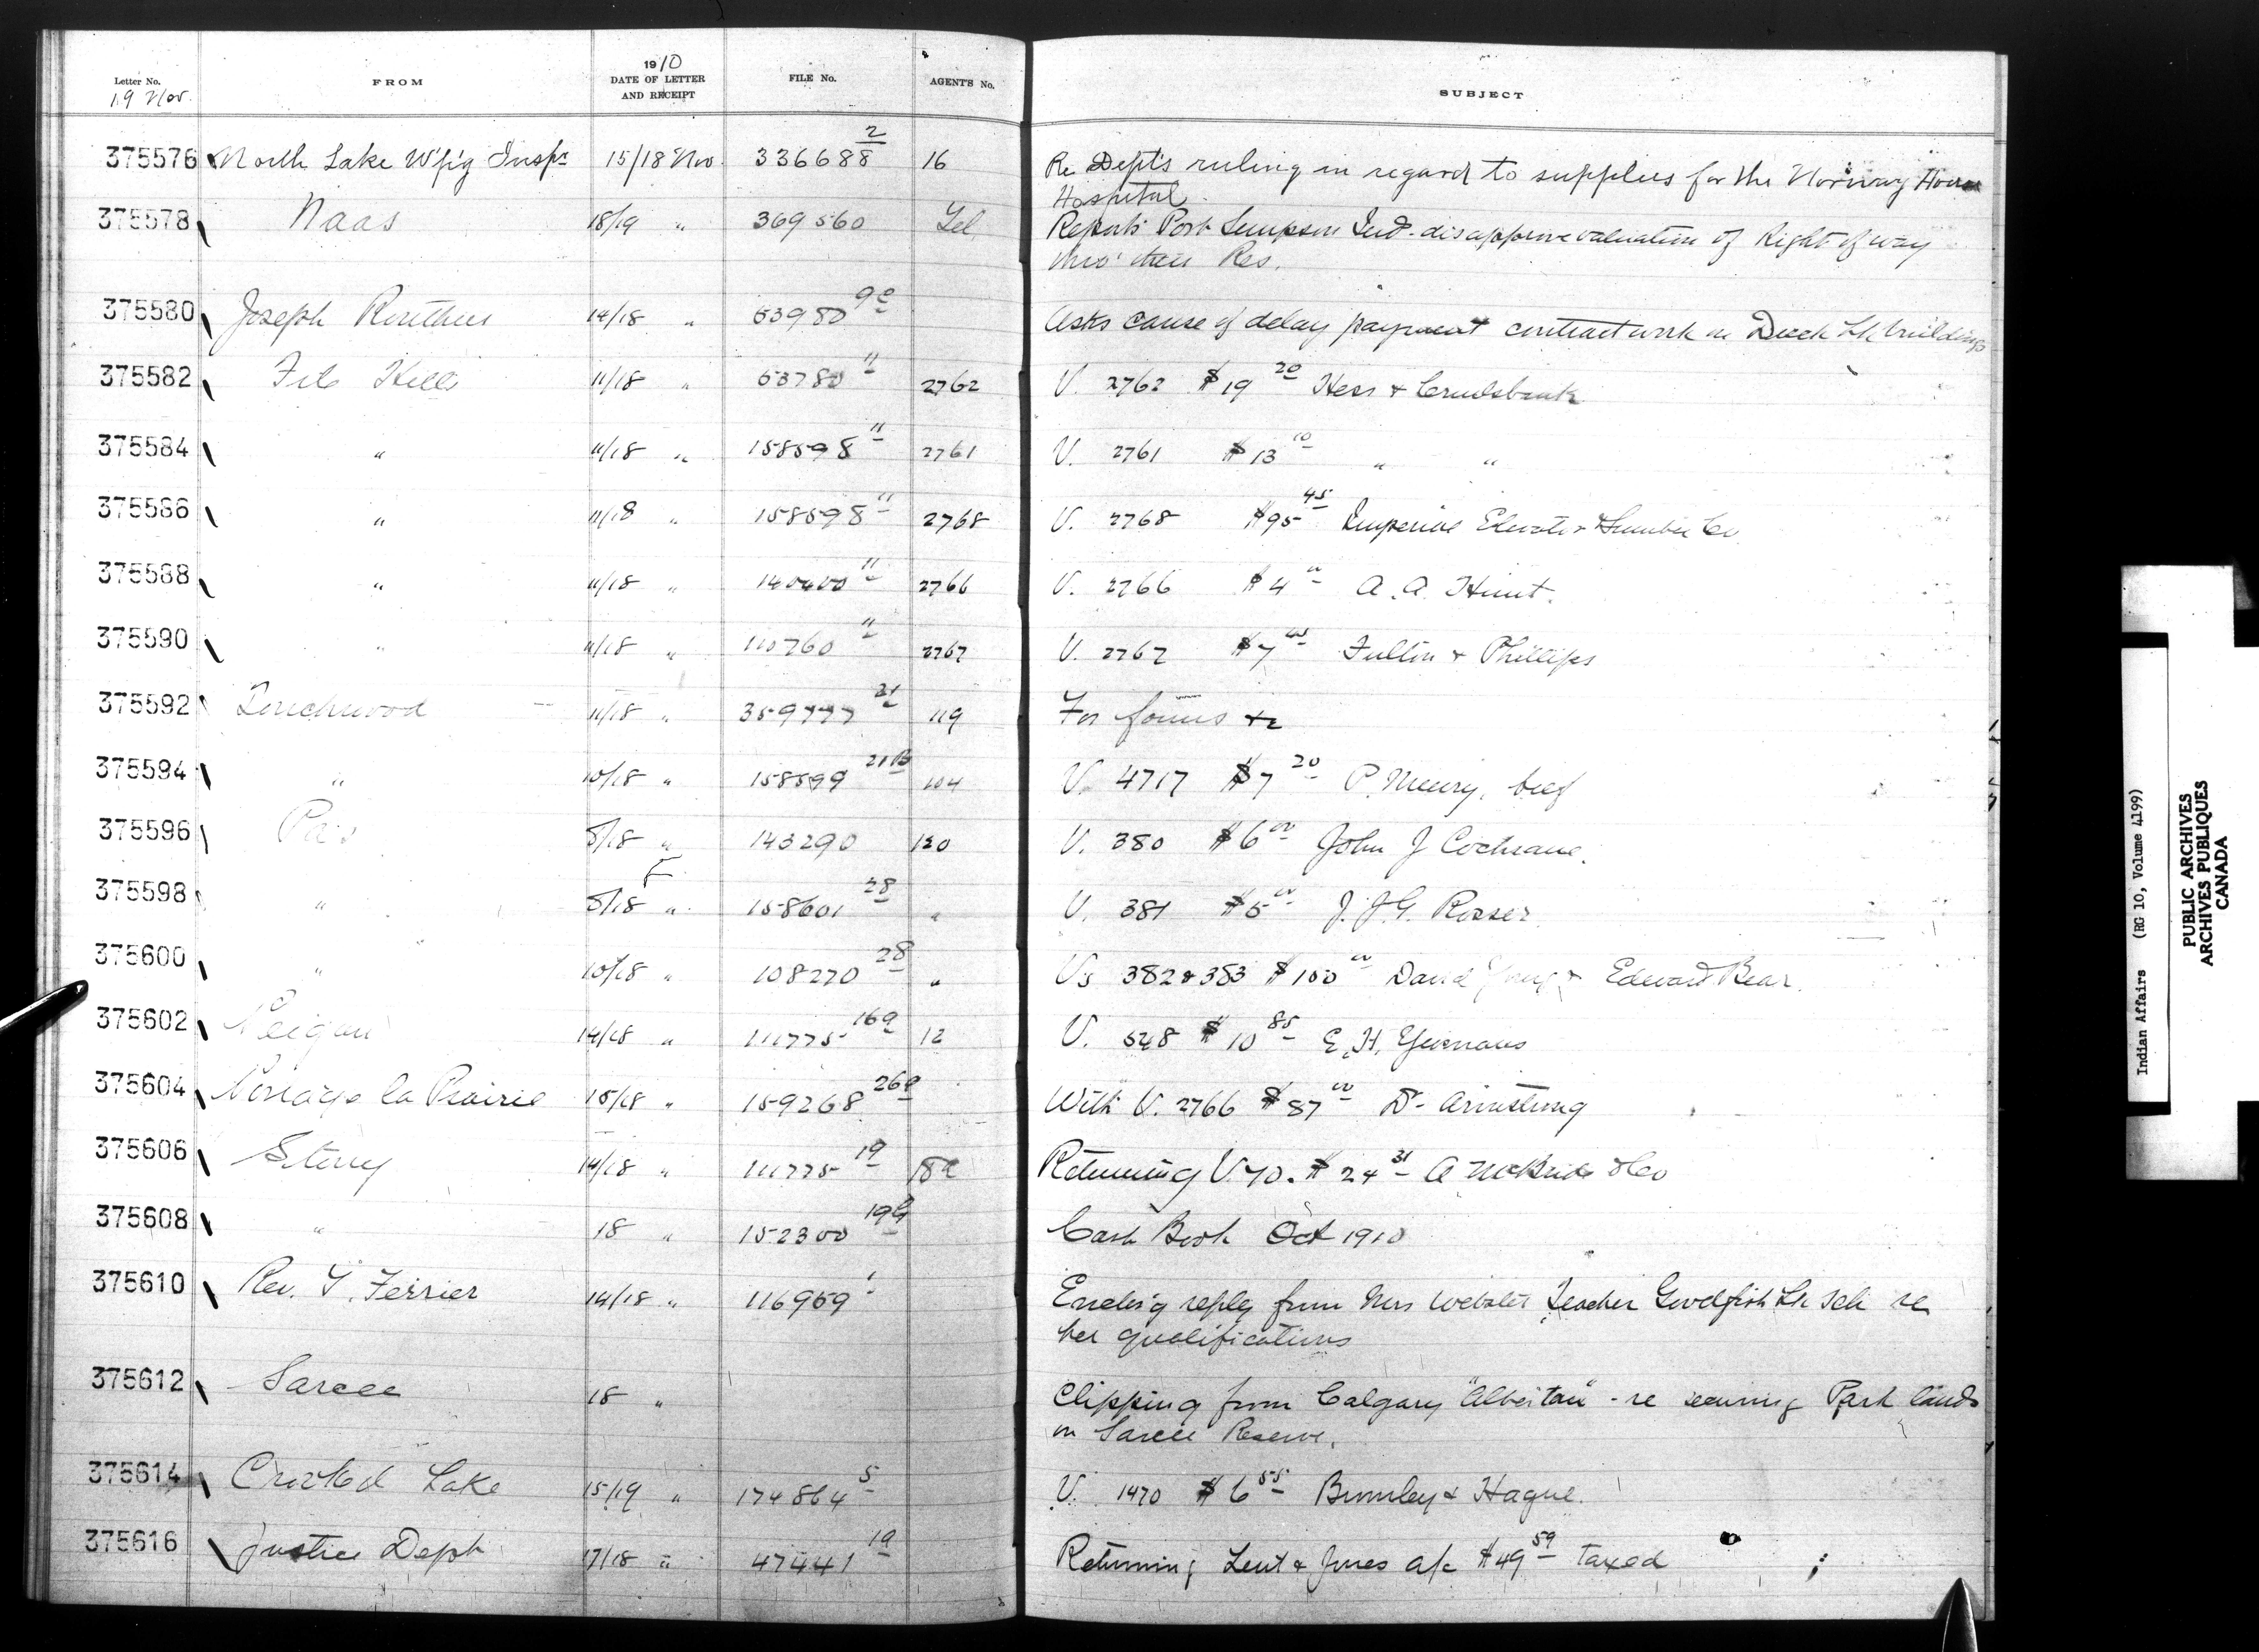 Letter No. FROM 1910 DATE OF LETTER AND RECEIPT FILE No. AGENT'S No. SUBJECT
19 Nov.
375576 North Lake W'p'g Inspr 15/18 Nov. 336688 2 16 Re Dept's ruling in regard to supplies for the Norway House
Hospital
375578 Naas 18/19 " 369560 Tel. Reports Port Simpson Ind. disapprove valuation of Right of way
thro' their Res.
375580 Joseph 14/18 " 53980 Asks cause of delay payment contract work on Duck Lk buildings
375582 File Hills 11/18 " 53780 11 2762 V. 2762 $19 20 Hess &
375584 " 11/18 " 158598 11 2761 V. 2761 $13 10 " "
375586 " 11/18 " 158598 11 2768 V. 2768 $95 45 Imperial Elevator & Lumber Co
375588 " 11/18 " 140400 11 2766 V. 2766 $4 00 A. A. Hunt.
375590 " 11/18 " 110760 11 2767 V. 2767 $7 45 Fulton & Phillips
375592 Touchwood 11/18 " 359777 21 119 For forms &c
375594 " 10/18 " 158599 21B 104 V. 4717 $7 20 P. beef
375596 Pas 8/18 " 143290 120 V. 380 $6 00 John J Cochrane.
375598 " 8/18 " 158601 28 " V. 381 $5 00 J. J. G. Rosser.
375600 " 10/18 " 108270 28 " Vs 382 & 383 $100 00 David & Edward Bear.
375602 Peigan 14/18 " 111775 16a 12 V. 548 $10 85 E. H. Yeomans
375604 Portage la Prairie 15/18 " 159268 26a With V. 2766 $87 00 Dr Armstrong
375606 Stony 14/18 " 111775 19 Returning V. 70. $24 31 A McBride & Co
375608 " 18 " 152300 19G Cash Book Oct 1910
375610 Rev. T. Ferrier 14/18 " 116959 Enclos'g reply from Mrs Webster Teacher Goodfish Lk Sch re
her qualifications
375612 Sarcee 18 " Clipping from Calgary "Albertan" - re securing Park lands
on Sarcee Reserve.
375614 Crooked Lake 15/19 " 174864 5 V. 1470 $6 55 Bromley & Hague.
375616 Justice Dept 17/18 " 47441 19 Returning Lent & Jones a/c $49 59 taxed
Indian Affairs (RG 10, Volume 4199)
PUBLIC ARCHIVES
ARCHIVES PUBLIQUES
CANADA